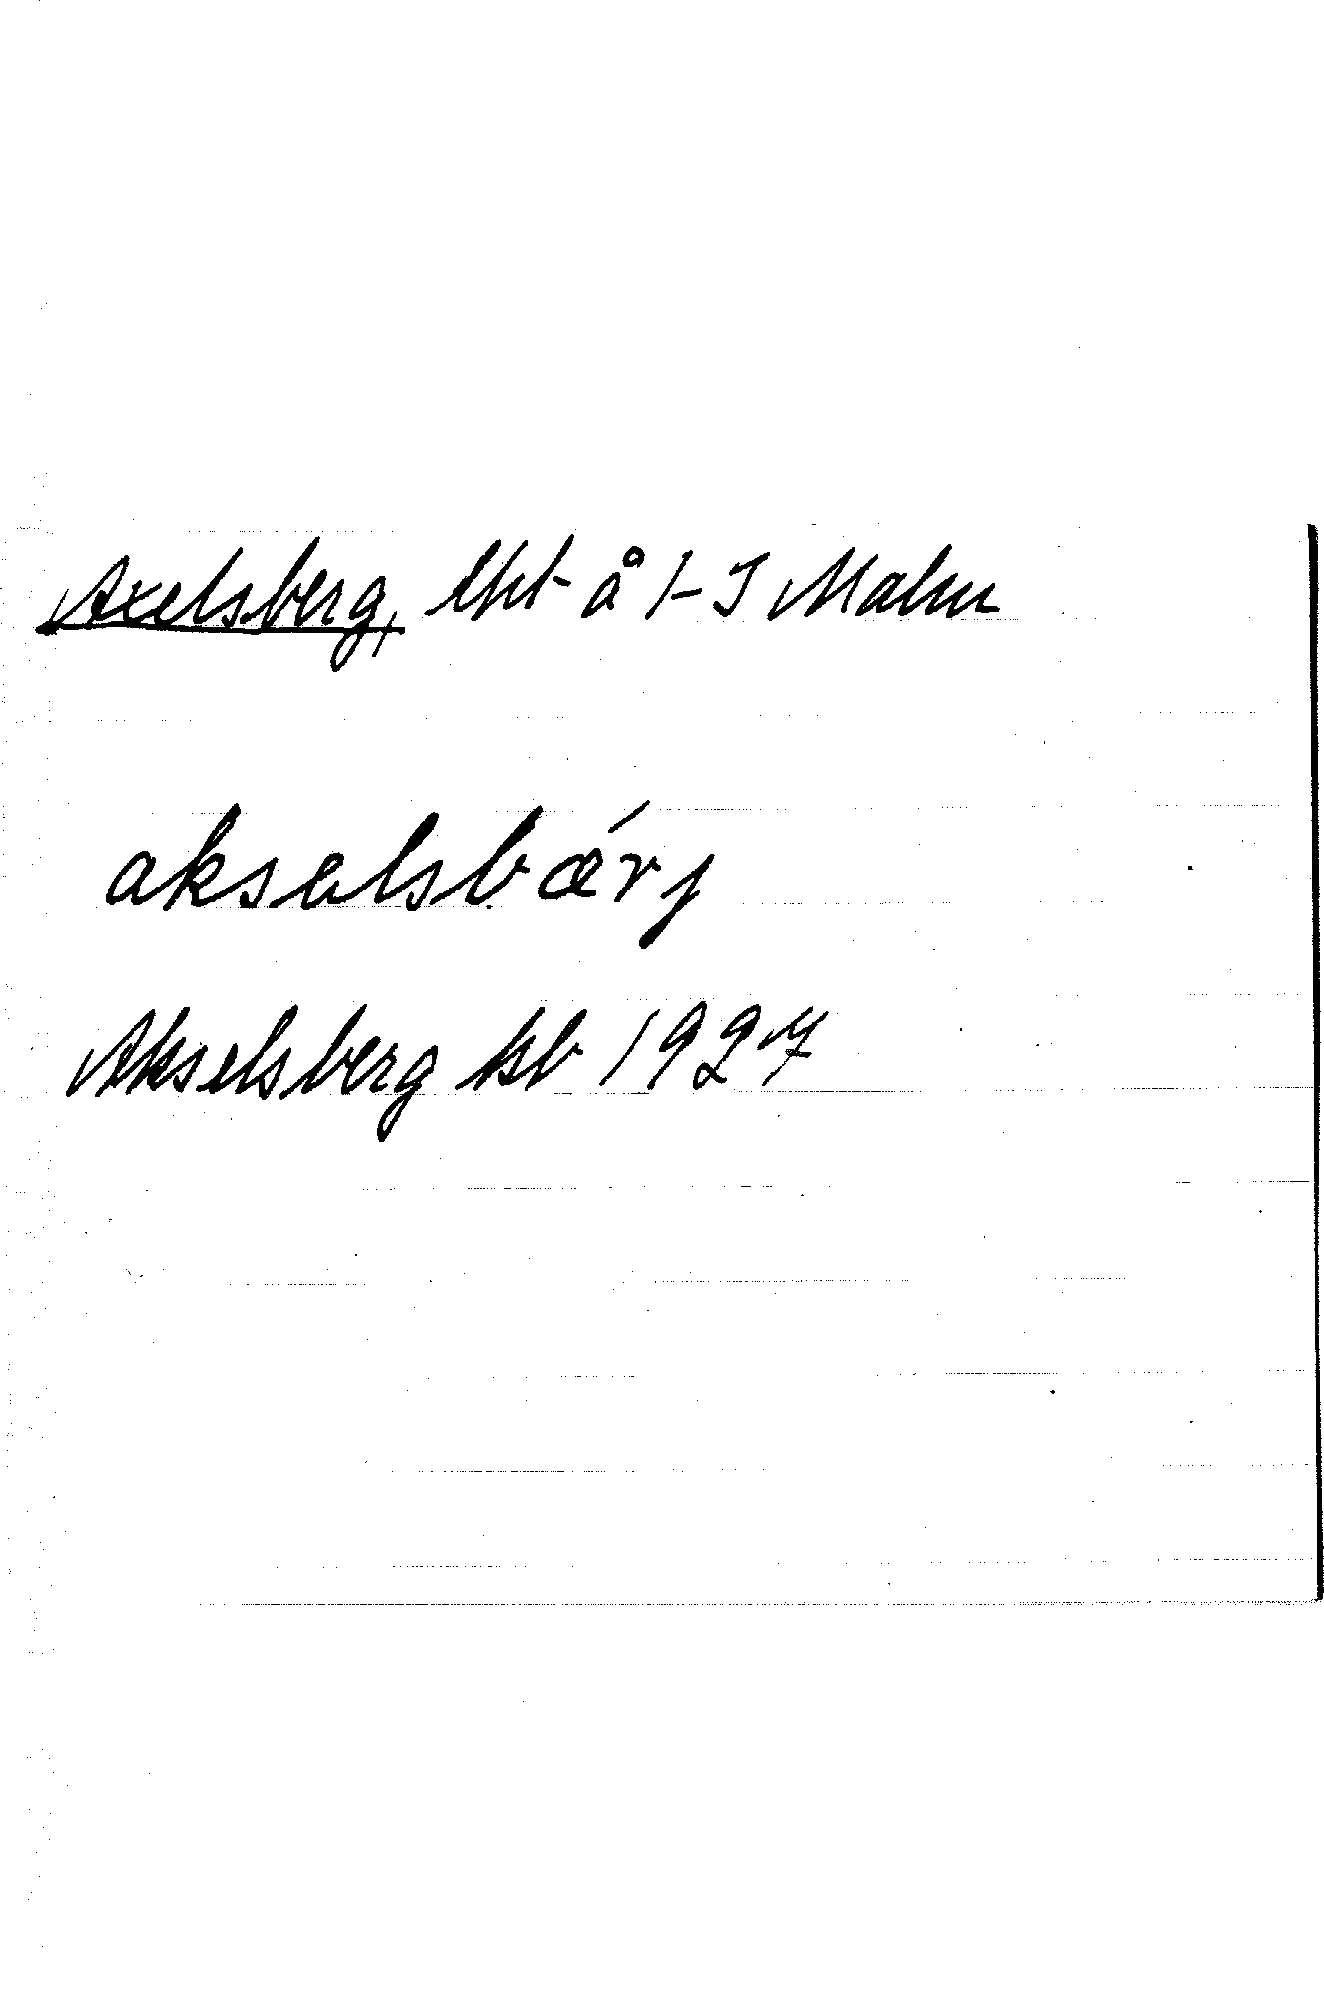 Axelsberg, lht å 1-3 Malm
akselsbærj
Akselsberg kb 1927